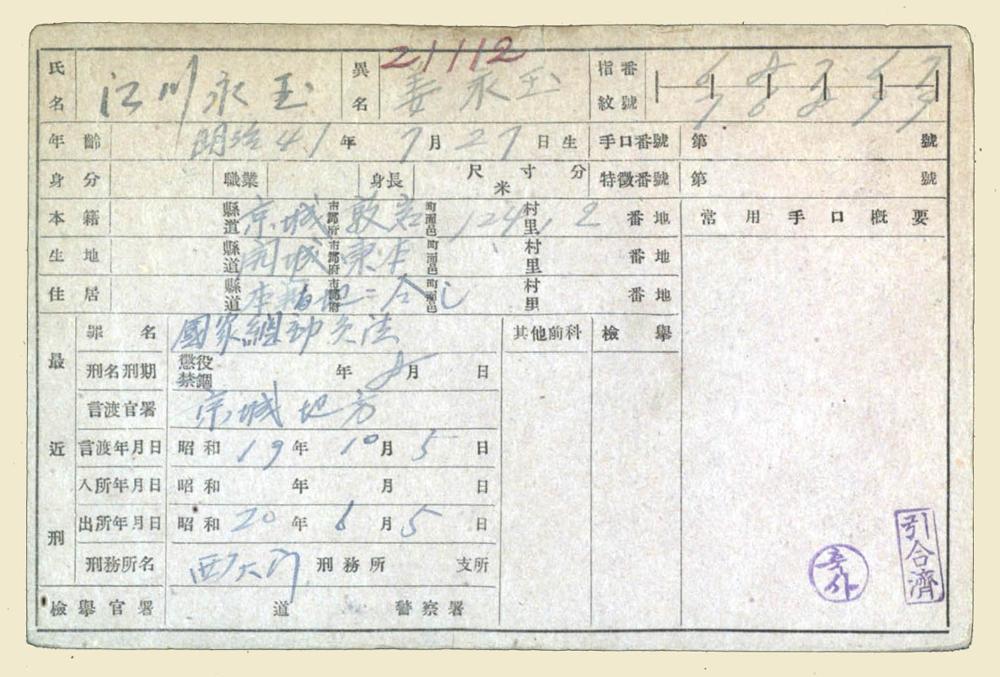 21112
氏名 江川永玉 異名 姜永玉 指紋番號
年齡 明治41年7月27日生 手口番號 第 號
身分 職業 身長 尺寸分 米 特徵番號 第 號
本籍 縣道 京城 市郡府 敦岩 町面邑 124, 2 村里 番地 常用手口概要
生地 縣道 開城 市郡府 東本 町面邑 村里 番地
住居 縣道 本籍地ニ合シ 市郡府 町面邑 村里 番地
最近刑
罪名 國家總動員法 其他前科 檢擧
刑名刑期 懲役禁錮 年 8月 日
言渡官署 京城地方
言渡年月日 昭和19年10月5日
入所年月日 昭和 年 月 日
出所年月日 昭和20年6月5日
刑務所名 西大門 刑務所 支所
檢擧官署 道 警察署
引合濟